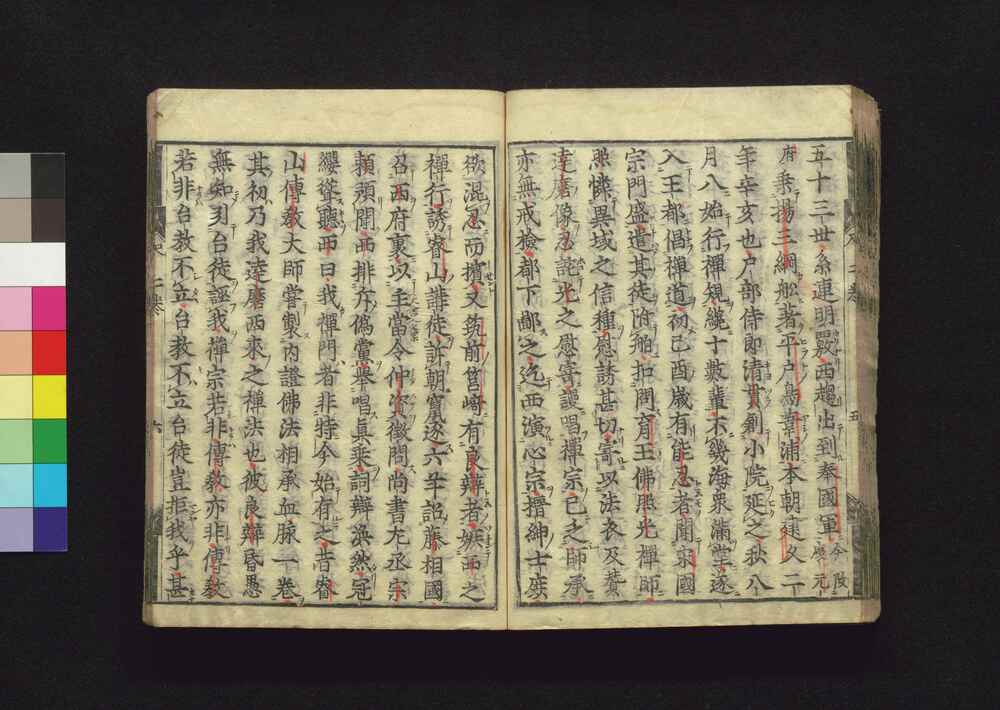 五十三世糸連明覈西趨出到奉國軍今改慶元
府乗揚三綱舩著平户嶌葦浦本朝建久二
年辛亥也户部侍郎清貫剏小院延之秋八
月八始行禪規纔十數輩不幾海衆滿堂逐
入王都倡禪道初己酉歳有能忍者聞宋國
宗門盛遣其徒附舶扣問育王佛照光禪師
照憐異域之信種慰誘甚切寄以法衣及賛
達磨像忍詫光之慰寄謾唱禪宗已乏師承
亦無戒檢都下鄙之迄西演心宗搢紳士庶
欲混忍而擯又筑前筥崎有良辯者嫉西之
禪行誘睿山講徒訴朝竄逐六年詔藤相國
召西府裏以主當令仲資徴問尚書左丞宗
頼預聞西排斥僞黨舉唱眞乗詞辯渙然冠
纓聳聽西曰我禪門者非特今始有之昔睿
山傳教大師甞製内證佛法相承血脉一卷
其初乃我達磨西來之禪法也彼良辯昏愚
無知引台徒誣我禪宗若非傳教亦非傳教
若非台教不立台教不立台徒豈拒我乎甚